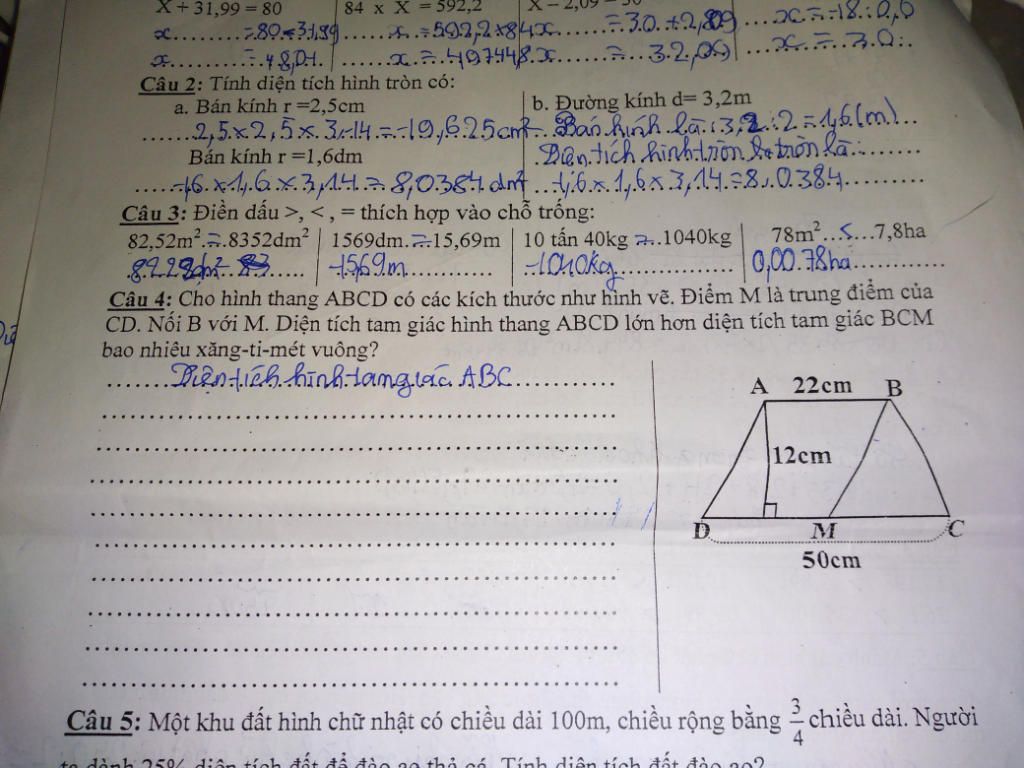 X + 31,99 = 80 84 x X = 592,2 X – 2,09 = 30
x = 80 - 31,99 x = 592,2 x 84 x = 30 + 2,09 x = 18 : 0,6
x = 48,01 x = 49744,8 x = 32,09 x = 30
Câu 2: Tính diện tích hình tròn có:
a. Bán kính r =2,5cm b. Đường kính d= 3,2m
2,5 x 2,5 x 3,14 = 19,625 cm² Bán kính là : 3,2 : 2 = 1,6 (m)
Bán kính r =1,6dm Diện tích hình tròn là :
1,6 x 1,6 x 3,14 = 8,0384 dm² 1,6 x 1,6 x 3,14 = 8,0384
Câu 3: Điền dấu >, < , = thích hợp vào chỗ trống:
82,52m² = 8352dm² 1569dm = 15,69m 10 tấn 40kg = 1040kg 78m² < 7,8ha
1569m 1040kg 0,0078ha
Câu 4: Cho hình thang ABCD có các kích thước như hình vẽ. Điểm M là trung điểm của
CD. Nối B với M. Diện tích tam giác hình thang ABCD lớn hơn diện tích tam giác BCM
bao nhiêu xăng-ti-mét vuông?
Diện tích hình tam giác ABC
A 22cm B
12cm
D M C
50cm
Câu 5: Một khu đất hình chữ nhật có chiều dài 100m, chiều rộng bằng 3/4 chiều dài. Người
ta dành 25% diện tích đất để đào ao thả cá. Tính diện tích đất đào ao?